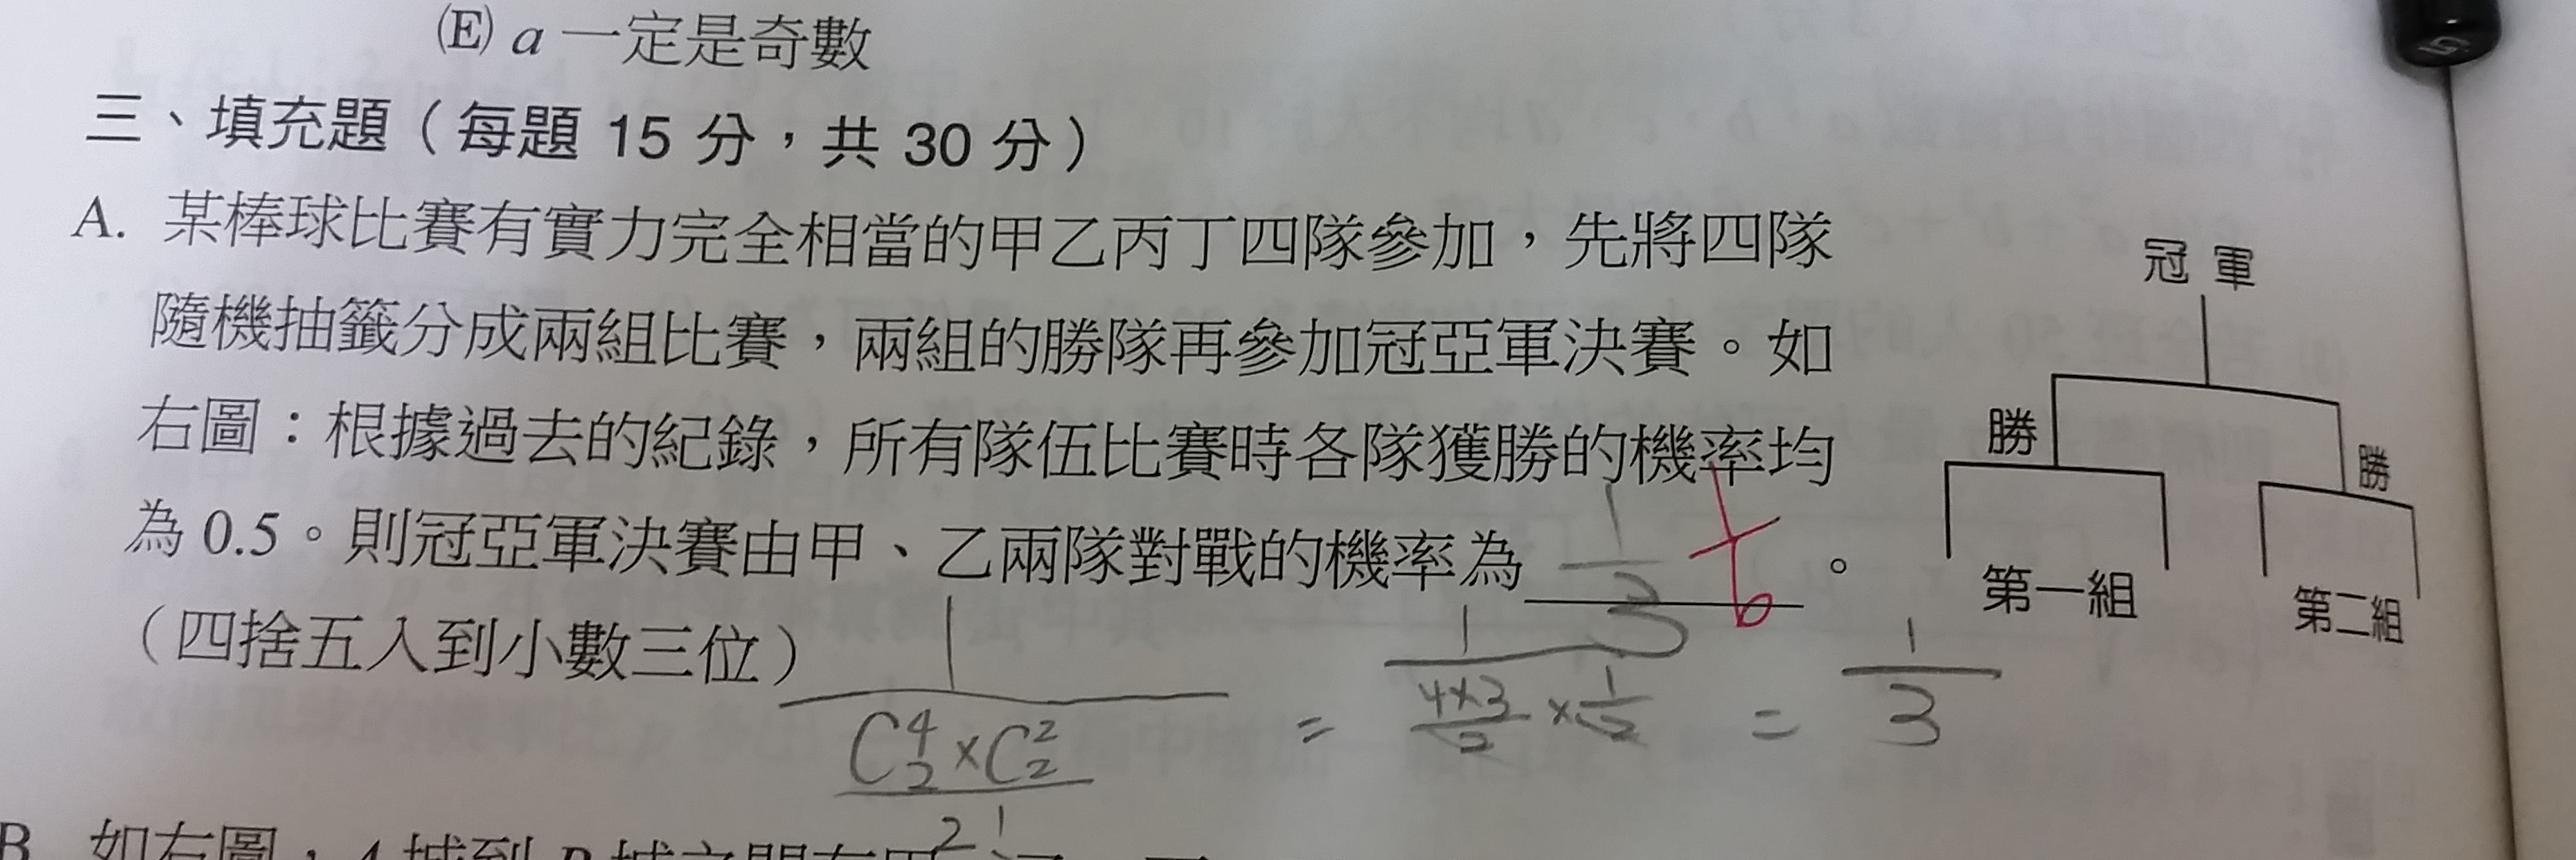 (E) a 一定是奇數
三、填充題（每題 15 分，共 30 分）
A. 某棒球比賽有實力完全相當的甲乙丙丁四隊參加，先將四隊
隨機抽籤分成兩組比賽，兩組的勝隊再參加冠亞軍決賽。如
右圖：根據過去的紀錄，所有隊伍比賽時各隊獲勝的機率均
為 0.5。則冠亞軍決賽由甲、乙兩隊對戰的機率為 1/3 。
（四捨五入到小數三位）
冠軍
勝
勝
第一組
第二組
1/(C⁴₂×C²₂/2) = 1/(4×3/2×1/2) = 1/3
6
B. 如右圖，A 城到 B 城之間有